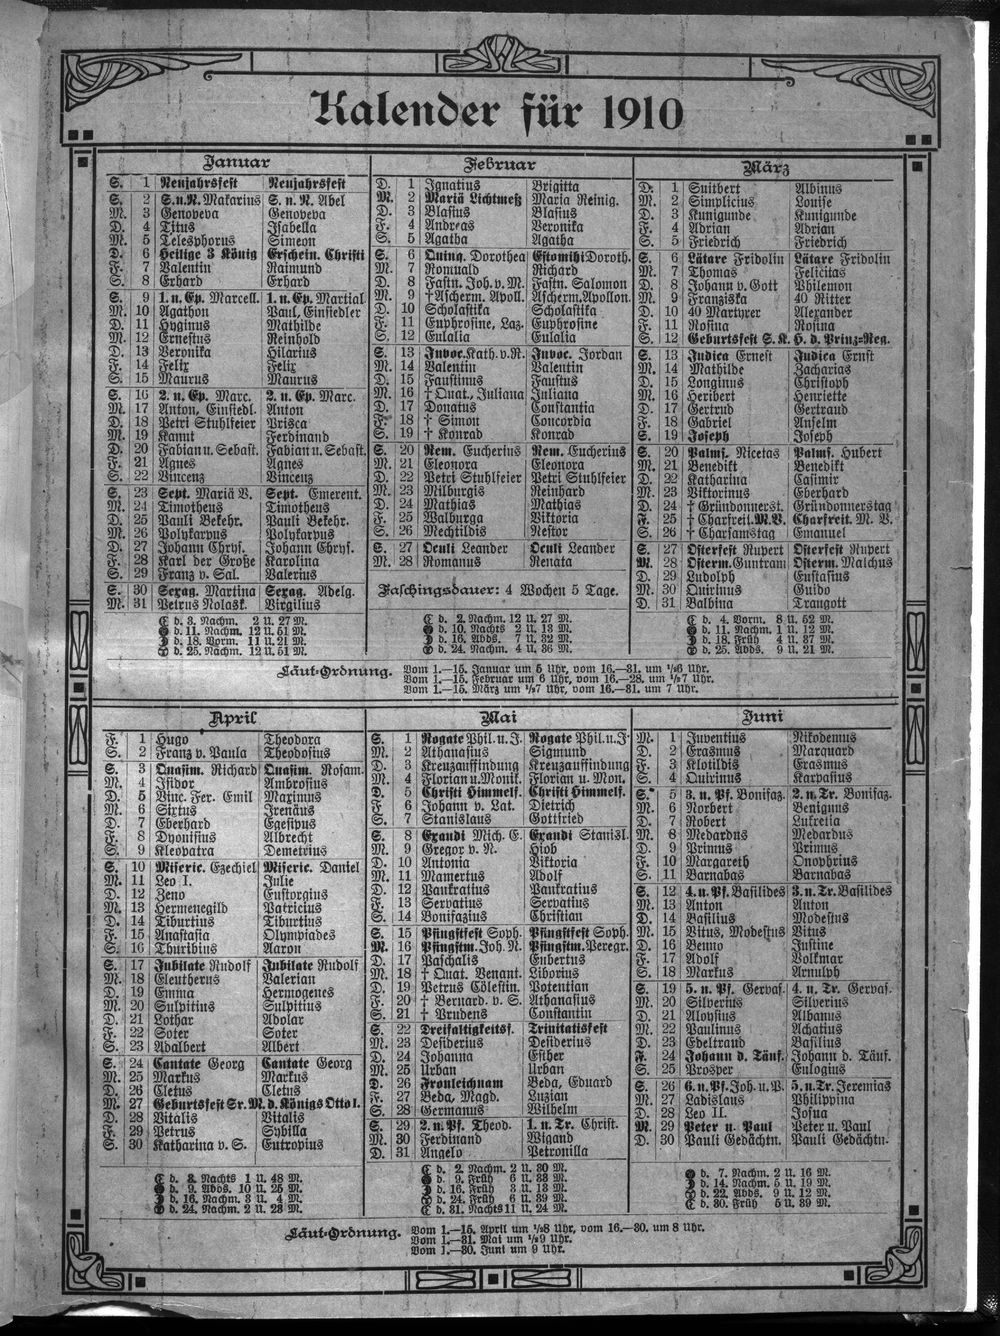 Kalender für 1910
Januar
S. 1 Neujahrsfest Neujahrsfest
S. 2 S. n. N. Makarius S. n. N. Abel
M. 3 Genoveva Genoveva
D. 4 Titus Isabella
M. 5 Telesphorus Simeon
D. 6 Heilige 3 König Erschein. Christi
F. 7 Valentin Raimund
S. 8 Erhard Erhard
S. 9 1. n. Ep. Marcell. 1. n. Ep. Martial
M. 10 Agathon Paul, Einsiedler
D. 11 Hyginus Mathilde
M. 12 Ernestus Reinhold
D. 13 Veronika Hilarius
F. 14 Felix Felix
S. 15 Maurus Maurus
S. 16 2. n. Ep. Marc. 2. n. Ep. Marc.
M. 17 Anton, Einsiedl. Anton
D. 18 Petri Stuhlfeier Prisca
M. 19 Kanut Ferdinand
D. 20 Fabian u. Sebast. Fabian u. Sebast.
F. 21 Agnes Agnes
S. 22 Vincenz Vincenz
S. 23 Sept. Mariä V. Sept. Emerent.
M. 24 Timotheus Timotheus
D. 25 Pauli Bekehr. Pauli Bekehr.
M. 26 Polykarpus Polykarpus
D. 27 Johann Chrys. Johann Chrys.
F. 28 Karl der Große Karolina
S. 29 Franz v. Sal. Valerius
S. 30 Sexag. Martina Sexag. Adelg.
M. 31 Petrus Nolask. Virgilius
d. 3. Nachm. 2 U. 27 M.
d. 11. Nachm. 12 U. 51 M.
d. 18. Vorm. 11 U. 21 M.
d. 25. Nachm. 12 U. 51 M.
Februar
D. 1 Ignatius Brigitta
M. 2 Mariä Lichtmeß Maria Reinig.
D. 3 Blasius Blasius
F. 4 Andreas Veronika
S. 5 Agatha Agatha
S. 6 Quinq. Dorothea Estomihi Doroth.
M. 7 Romuald Richard
D. 8 Fastn. Joh. v. M. Fastn. Salomon
M. 9 † Ascherm. Apoll. Ascherm. Apollon.
D. 10 Scholastika Scholastika
F. 11 Euphrosine, Laz. Euphrosine
S. 12 Eulalia Eulalia
S. 13 Invoc. Kath. v. R. Invoc. Jordan
M. 14 Valentin Valentin
D. 15 Faustinus Faustus
M. 16 † Quat., Juliana Juliana
D. 17 Donatus Constantia
F. 18 † Simon Concordia
S. 19 † Konrad Konrad
S. 20 Rem. Eucherius Rem. Eucherius
M. 21 Eleonora Eleonora
D. 22 Petri Stuhlfeier Petri Stuhlfeier
M. 23 Milburgis Reinhard
D. 24 Mathias Mathias
F. 25 Walburga Viktoria
S. 26 Mechtildis Nestor
S. 27 Oculi Leander Oculi Leander
M. 28 Romanus Renata
Faschingsdauer: 4 Wochen 5 Tage.
d. 2. Nachm. 12 U. 27 M.
d. 10. Nachts 2 U. 13 M.
d. 16. Abds. 7 U. 32 M.
d. 24. Nachm. 4 U. 36 M.
März
D. 1 Suitbert Albinus
M. 2 Simplicius Louise
D. 3 Kunigunde Kunigunde
F. 4 Adrian Adrian
S. 5 Friedrich Friedrich
S. 6 Lätare Fridolin Lätare Fridolin
M. 7 Thomas Felicitas
D. 8 Johann v. Gott Philemon
M. 9 Franziska 40 Ritter
D. 10 40 Martyrer Alexander
F. 11 Rosina Rosina
S. 12 Geburtsfest S. K. H. d. Prinz-Reg.
S. 13 Judica Ernest Judica Ernst
M. 14 Mathilde Zacharias
D. 15 Longinus Christoph
M. 16 Heribert Henriette
D. 17 Gertrud Gertraud
F. 18 Gabriel Anselm
S. 19 Joseph Joseph
S. 20 Palms. Nicetas Palms. Hubert
M. 21 Benedikt Benedikt
D. 22 Katharina Casimir
M. 23 Viktorinus Eberhard
D. 24 † Gründonnerst. Gründonnerstag
F. 25 † Charfreit. M. V. Charfreit. M. V.
S. 26 † Charsamstag Emanuel
S. 27 Osterfest Rupert Osterfest Rupert
M. 28 Osterm. Guntram Osterm. Malchus
D. 29 Ludolph Eustasius
M. 30 Quirinus Guido
D. 31 Balbina Traugott
d. 4. Vorm. 8 U. 52 M.
d. 11. Nachm. 1 U. 12 M.
d. 18. Früh 4 U. 37 M.
d. 25. Abds. 9 U. 21 M.
Läut-Ordnung. Vom 1.—15. Januar um 5 Uhr, vom 16.—31. um ½6 Uhr.
Vom 1.—15. Februar um 6 Uhr, vom 16.—28. um ½7 Uhr.
Vom 1.—15. März um ½7 Uhr, vom 16.—31. um 7 Uhr.
April
F. 1 Hugo Theodora
S. 2 Franz v. Paula Theodosius
S. 3 Quasim. Richard Quasim. Rosam.
M. 4 Isidor Ambrosius
D. 5 Vinc. Fer. Emil Maximus
M. 6 Sixtus Irenäus
D. 7 Eberhard Egesipus
F. 8 Dyonisius Albrecht
S. 9 Kleopatra Demetrius
S. 10 Miseric. Ezechiel Miseric. Daniel
M. 11 Leo I. Julie
D. 12 Zeno Eustorgius
M. 13 Hermenegild Patricius
D. 14 Tiburtius Tiburtius
F. 15 Anastasia Olympiades
S. 16 Thuribius Aaron
S. 17 Jubilate Rudolf Jubilate Rudolf
M. 18 Eleutherus Valerian
D. 19 Emma Hermogenes
M. 20 Sulpitius Sulpitius
D. 21 Lothar Adolar
F. 22 Soter Soter
S. 23 Adalbert Albert
S. 24 Cantate Georg Cantate Georg
M. 25 Markus Markus
D. 26 Cletus Cletus
M. 27 Geburtsfest Sr. M. d. Königs Otto I.
D. 28 Vitalis Vitalis
F. 29 Petrus Sybilla
S. 30 Katharina v. S. Eutropius
d. 3. Nachts 1 U. 48 M.
d. 9. Abds. 10 U. 25 M.
d. 16. Nachm. 3 U. 4 M.
d. 24. Nachm. 2 U. 23 M.
Mai
S. 1 Rogate Phil. u. J. Rogate Phil. u. J.
M. 2 Athanasius Sigmund
D. 3 Kreuzauffindung Kreuzauffindung
M. 4 Florian u. Monik. Florian u. Mon.
D. 5 Christi Himmelf. Christi Himmelf.
F. 6 Johann v. Lat. Dietrich
S. 7 Stanislaus Gottfried
S. 8 Exaudi Mich. E. Exaudi Stanisl.
M. 9 Gregor v. N. Hiob
D. 10 Antonia Viktoria
M. 11 Mamertus Adolf
D. 12 Pankratius Pankratius
F. 13 Servatius Servatius
S. 14 Bonifazius Christian
S. 15 Pfingstfest Soph. Pfingstfest Soph.
M. 16 Pfingstm. Joh. N. Pfingstm. Peregr.
D. 17 Paschalis Tubertus
M. 18 † Quat. Venant. Liborius
D. 19 Petrus Cölestin. Potentian
F. 20 † Bernard. v. S. Athanasius
S. 21 † Prudens Constantin
S. 22 Dreifaltigkeitsf. Trinitatisfest
M. 23 Desiderius Desiderius
D. 24 Johanna Esther
M. 25 Urban Urban
D. 26 Fronleichnam Beda, Eduard
F. 27 Beda, Magd. Luzian
S. 28 Germanus Wilhelm
S. 29 2. n. Pf. Theod. 1. n. Tr. Christ.
M. 30 Ferdinand Wigand
D. 31 Angelo Petronilla
d. 2. Nachm. 2 U. 30 M.
d. 9. Früh 6 U. 33 M.
d. 16. Früh 3 U. 13 M.
d. 24. Früh 6 U. 39 M.
d. 31. Nachts 11 U. 24 M.
Juni
M. 1 Juventius Nikodemus
D. 2 Erasmus Marquard
F. 3 Klotildis Erasmus
S. 4 Quirinus Karpasius
S. 5 3. n. Pf. Bonifaz. 2. n. Tr. Bonifaz.
M. 6 Norbert Benignus
D. 7 Robert Lukretia
M. 8 Medardus Medardus
D. 9 Primus Primus
F. 10 Margareth Onophrius
S. 11 Barnabas Barnabas
S. 12 4. n. Pf. Basilides 3. n. Tr. Basilides
M. 13 Anton Anton
D. 14 Basilius Modestus
M. 15 Vitus, Modestus Vitus
D. 16 Benno Justine
F. 17 Adolf Volkmar
S. 18 Markus Arnulph
S. 19 5. n. Pf. Gervas. 4. n. Tr. Gervas.
M. 20 Silverius Silverius
D. 21 Aloysius Albanus
M. 22 Paulinus Achatius
D. 23 Edeltraud Basilius
F. 24 Johann d. Täuf. Johann d. Täuf.
S. 25 Prosper Eulogius
S. 26 6. n. Pf. Joh. u. P. 5. n. Tr. Jeremias
M. 27 Ladislaus Philippina
D. 28 Leo II. Josua
M. 29 Peter u. Paul Peter u. Paul
D. 30 Pauli Gedächtn. Pauli Gedächtn.
d. 7. Nachm. 2 U. 16 M.
d. 14. Nachm. 5 U. 19 M.
d. 22. Abds. 9 U. 12 M.
d. 30. Früh 5 U. 39 M.
Läut-Ordnung. Vom 1.—15. April um ½8 Uhr, vom 16.—30. um 8 Uhr.
Vom 1.—31. Mai um ½9 Uhr.
Vom 1.—30. Juni um 9 Uhr.